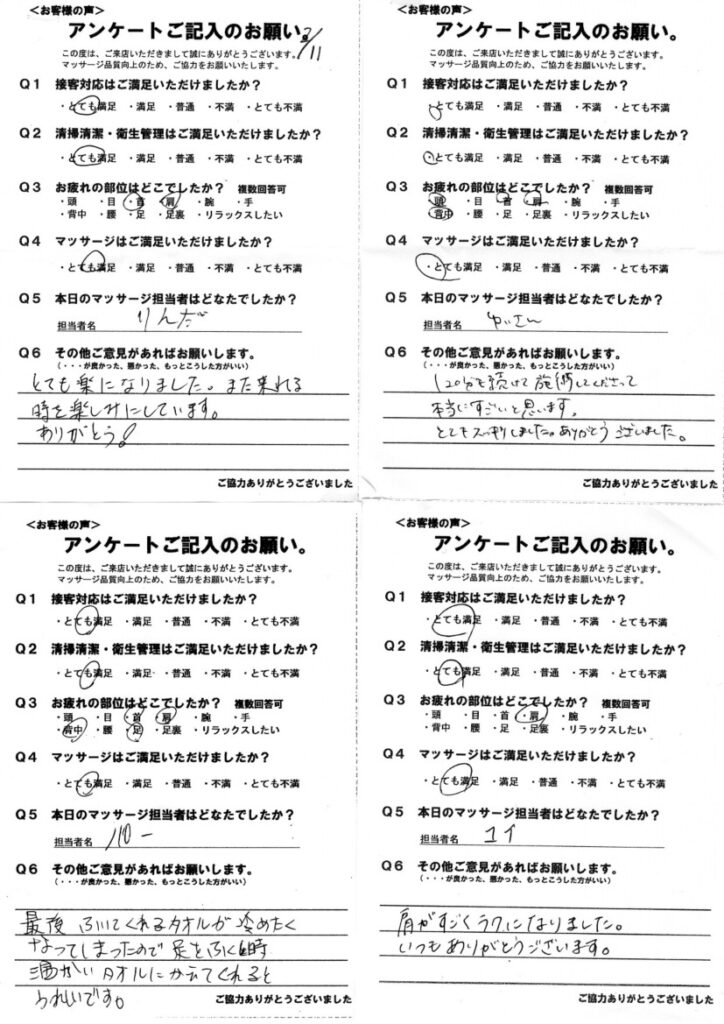 <お客様の声>
アンケートご記入のお願い。
2/11
この度は、ご来店いただきまして誠にありがとうございます。
マッサージ品質向上のため、ご協力をお願いいたします。
Q1 接客対応はご満足いただけましたか？
・とても満足 ・満足 ・普通 ・不満 ・とても不満
Q2 清掃清潔・衛生管理はご満足いただけましたか？
・とても満足 ・満足 ・普通 ・不満 ・とても不満
Q3 お疲れの部位はどこでしたか？ 複数回答可
・頭 ・目 ・首 ・肩 ・腕 ・手
・背中 ・腰 ・足 ・足裏 ・リラックスしたい
Q4 マッサージはご満足いただけましたか？
・とても満足 ・満足 ・普通 ・不満 ・とても不満
Q5 本日のマッサージ担当者はどなたでしたか？
担当者名 りんだ
Q6 その他ご意見があればお願いします。
(・・・が良かった、悪かった、もっとこうした方がいい)
とても楽になりました。また来れる
時を楽しみにしています。
ありがとう!
ご協力ありがとうございました
<お客様の声>
アンケートご記入のお願い。
この度は、ご来店いただきまして誠にありがとうございます。
マッサージ品質向上のため、ご協力をお願いいたします。
Q1 接客対応はご満足いただけましたか？
・とても満足 ・満足 ・普通 ・不満 ・とても不満
Q2 清掃清潔・衛生管理はご満足いただけましたか？
・とても満足 ・満足 ・普通 ・不満 ・とても不満
Q3 お疲れの部位はどこでしたか？ 複数回答可
・頭 ・目 ・首 ・肩 ・腕 ・手
・背中 ・腰 ・足 ・足裏 ・リラックスしたい
Q4 マッサージはご満足いただけましたか？
・とても満足 ・満足 ・普通 ・不満 ・とても不満
Q5 本日のマッサージ担当者はどなたでしたか？
担当者名 ゆいさん
Q6 その他ご意見があればお願いします。
(・・・が良かった、悪かった、もっとこうした方がいい)
120分も続けて施術してくださって
本当にすごいと思います。
とてもスッキリしました。ありがとうございました。
ご協力ありがとうございました
<お客様の声>
アンケートご記入のお願い。
この度は、ご来店いただきまして誠にありがとうございます。
マッサージ品質向上のため、ご協力をお願いいたします。
Q1 接客対応はご満足いただけましたか？
・とても満足 ・満足 ・普通 ・不満 ・とても不満
Q2 清掃清潔・衛生管理はご満足いただけましたか？
・とても満足 ・満足 ・普通 ・不満 ・とても不満
Q3 お疲れの部位はどこでしたか？ 複数回答可
・頭 ・目 ・首 ・肩 ・腕 ・手
・背中 ・腰 ・足 ・足裏 ・リラックスしたい
Q4 マッサージはご満足いただけましたか？
・とても満足 ・満足 ・普通 ・不満 ・とても不満
Q5 本日のマッサージ担当者はどなたでしたか？
担当者名
Q6 その他ご意見があればお願いします。
(・・・が良かった、悪かった、もっとこうした方がいい)
最後ふいてくれるタオルが冷めたく
なってしまったので足をふく時
温かいタオルにかえてくれると
うれしいです。
ご協力ありがとうございました
<お客様の声>
アンケートご記入のお願い。
この度は、ご来店いただきまして誠にありがとうございます。
マッサージ品質向上のため、ご協力をお願いいたします。
Q1 接客対応はご満足いただけましたか？
・とても満足 ・満足 ・普通 ・不満 ・とても不満
Q2 清掃清潔・衛生管理はご満足いただけましたか？
・とても満足 ・満足 ・普通 ・不満 ・とても不満
Q3 お疲れの部位はどこでしたか？ 複数回答可
・頭 ・目 ・首 ・肩 ・腕 ・手
・背中 ・腰 ・足 ・足裏 ・リラックスしたい
Q4 マッサージはご満足いただけましたか？
・とても満足 ・満足 ・普通 ・不満 ・とても不満
Q5 本日のマッサージ担当者はどなたでしたか？
担当者名 ユイ
Q6 その他ご意見があればお願いします。
(・・・が良かった、悪かった、もっとこうした方がいい)
肩がすごくラクになりました。
いつもありがとうございます。
ご協力ありがとうございました